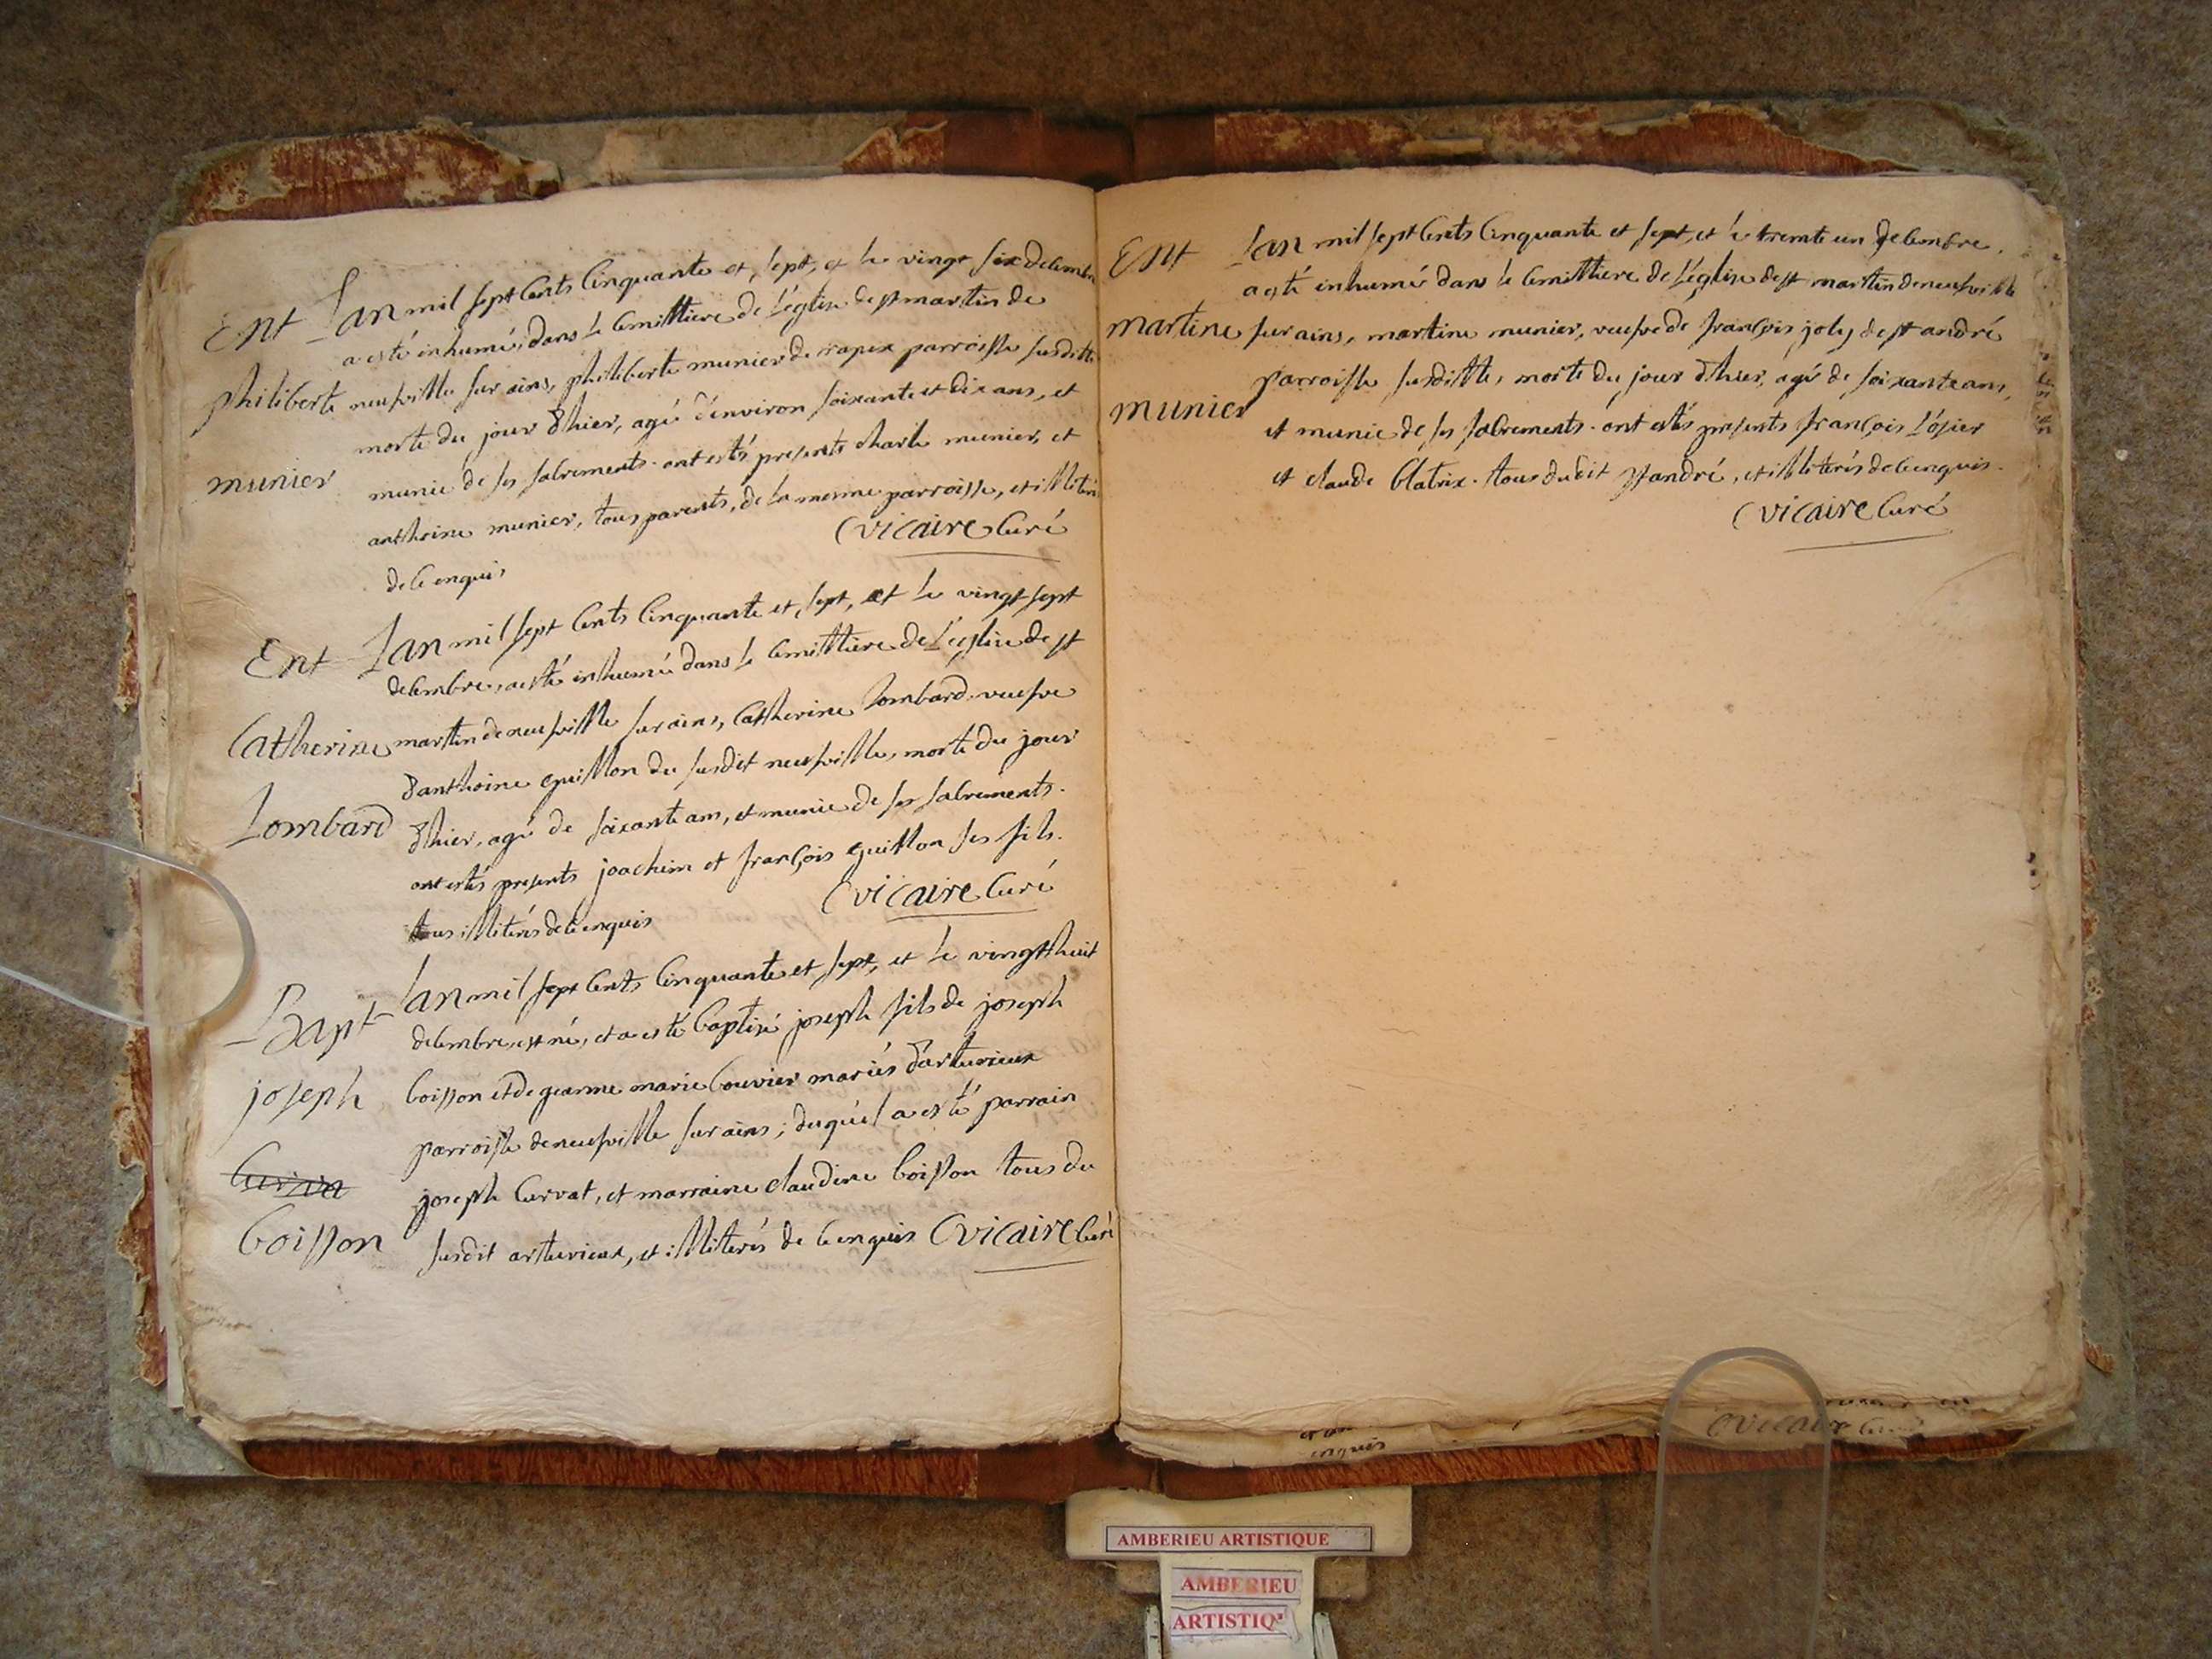 Ent
philiberte
munier
Lan mil sept Cents Cinquante et, sept, et le vingt six decembre
a esté inhumé, dans le Cemittiere de L'église de st martin de
neufville sur ains, philiberte munier de rapex parroisse susditte
morte du jour d'hier, agé d'environ soixante et dix ans, et
munie de ses sacrements. ont estés presents charle munier, et
anthoine munier, tous parents, de la mesme parroisse, et illiterés
de Ce enquis
Cvicaire Curé
Ent
Catherine
Lombard
Lan mil sept Cents Cinquante et, sept, et le vingt sept
decembre, a esté inhumé dans le Cemittiere de L'eglise de st
martin de neufville sur ains, Catherine Lombard veufve
d'anthoine guillon du susdit neufville, morte du jour
d'hier, agé de soixante ans, et munie de ses sacrements.
ont estés presents joachim et françois guillon ses fils.
tous illiterés de Ce enquis
Cvicaire Curé
Bapt
joseph
boisson
Lan mil sept Cents Cinquante et, sept, et le vingthuit
decembre, est né, et a esté baptisé joseph fils de joseph
boisson et de jeanne marie bouvier mariés d'arturieux
parroisse de neufville sur ains; duquel a esté parrain
joseph Curvat, et marraine claudine boisson tous du
susdit arturieux, et illiterés de Ce enquis Cvicaire Curé
Ent
martine
munier
Lan mil sept Cents Cinquante et sept, et le trente un decembre.
a esté inhumé dans le Cemittiere de L'église de st martin de neufville
sur ains, martine munier, veufve de françois joly de st andré
parroisse susditte, morte du jour d'hier, agé de soixante ans,
et munie de ses sacrements. ont estés presents françois L'osier
et claude blatrix. tous dudit st andré, et illiterés de Ce enquis.
Cvicaire Curé
enquis
Cvicaire
AMBERIEU ARTISTIQUE
AMBERIEU
ARTISTIQ